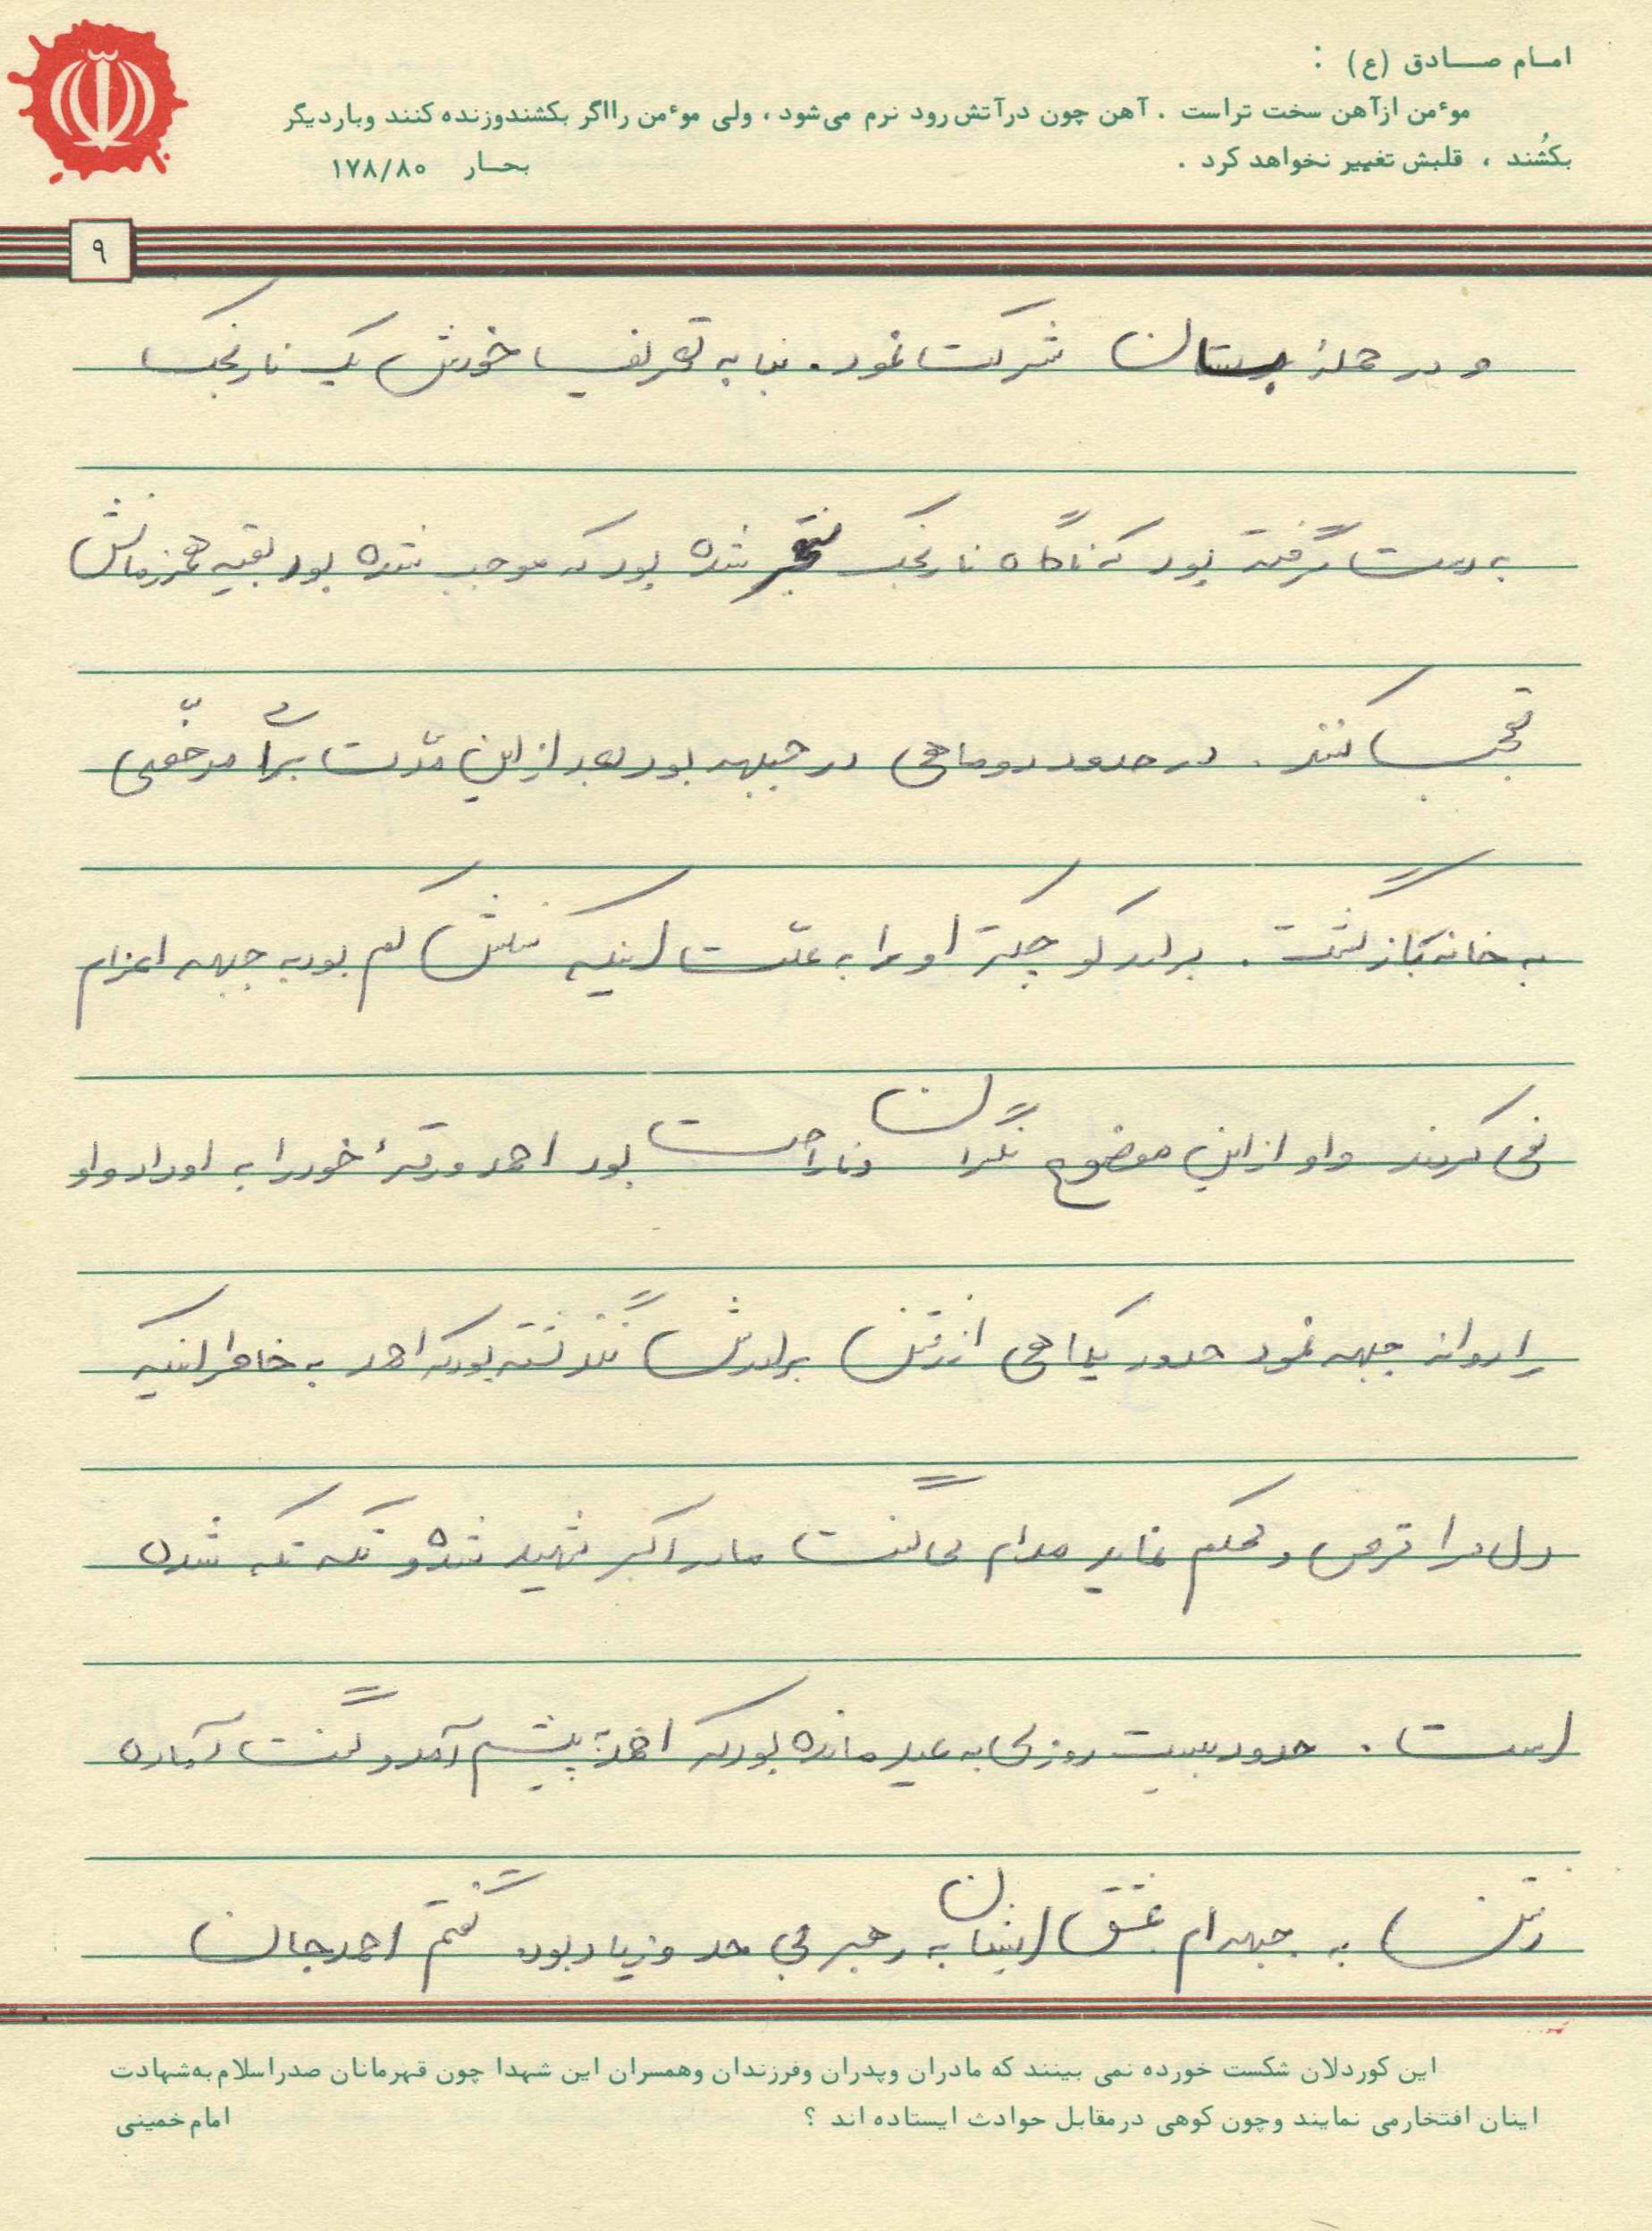 امام صادق (ع) :
موءمن ازآهن سخت تراست . آهن چون درآتش رود نرم می‌شود ، ولی موءمن رااگر بکشندوزنده کنند وباردیگر
بکُشند ، قلبش تغییر نخواهد کرد . بحار ۱۷۸/۸۰
۹
و در حملهٔ بستان شرکت نمود . بنا به تعریف خودش یک نارنجک
به دست گرفته بود که ناگاه نارنجک منفجر شده بود که موجب شده بود بقیه همرزمانش
تعجب کنند . در حدود دو ماهی در جبهه بود بعد از این مدّت برای مرخّصی
به خانه بازگشت . برادر کوچکتر او را به علّت اینکه سنش کم بود به جبهه اعزام
نمی کردند و او از این موضوع نگران و ناراحت بود احمد ورقهٔ خود را به او داد و او
را روانه جبهه نمود حدود یکماهی از رفتن برادرش نگذشته بود که احمد به خاطر اینکه
دل مرا قرص و محکم نماید مدام می گفت مادر اکبر شهید شده و تکه تکه شده
است . حدود بیست روزی به عید مانده بود که احمد پیشم آمد و گفت آماده
رفتن به جبهه ام عشق ایشان به رهبر بی حد و زیاد بود گفتم احمد جان
این کوردلان شکست خورده نمی بینند که مادران وپدران وفرزندان وهمسران این شهدا چون قهرمانان صدراسلام به‌شهادت
اینان افتخارمی نمایند وچون کوهی درمقابل حوادث ایستاده اند ؟ امام‌خمینی